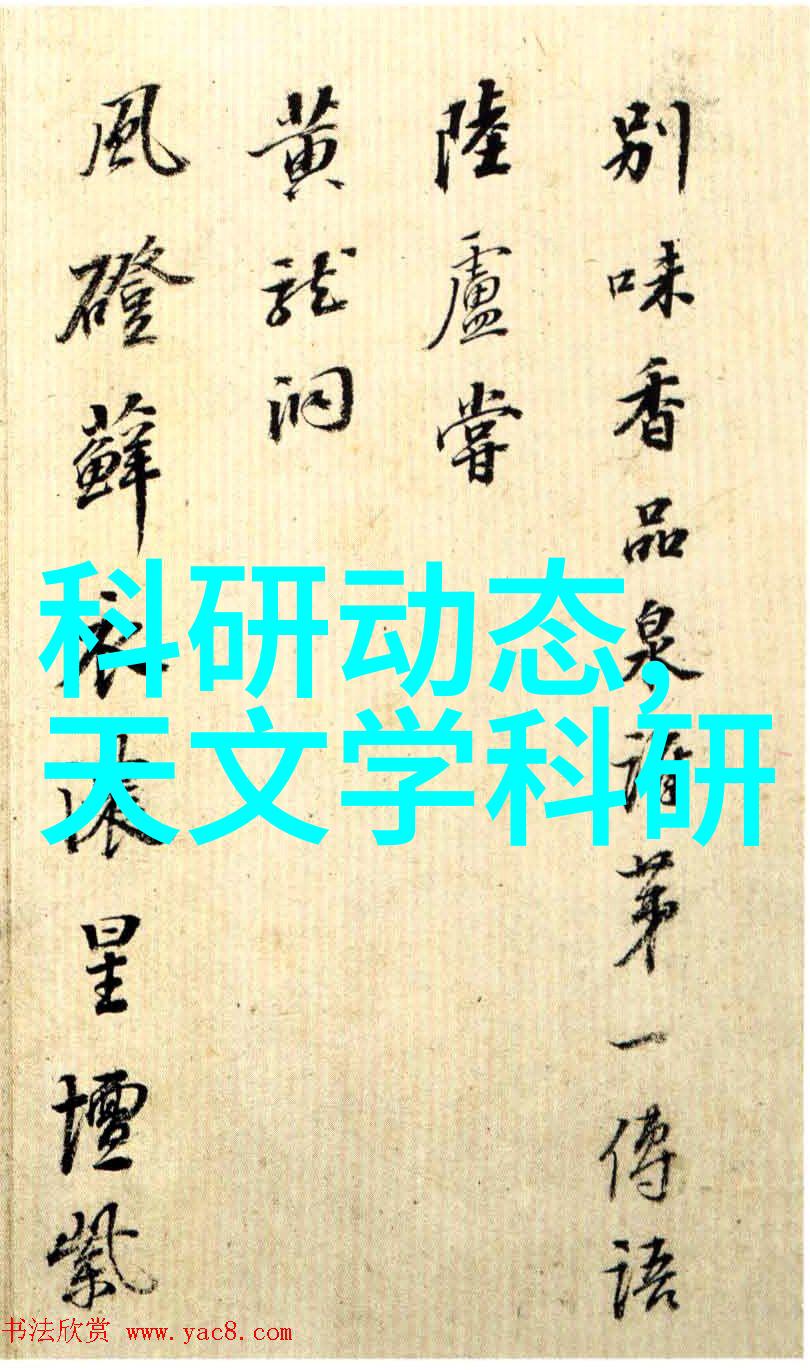 別味香品泉請第一傳語
陸盧嘗
黄龍洞
風磴蘚衣星壇紫
科研动态,
天文学科研
书法欣赏 www.yac8.com